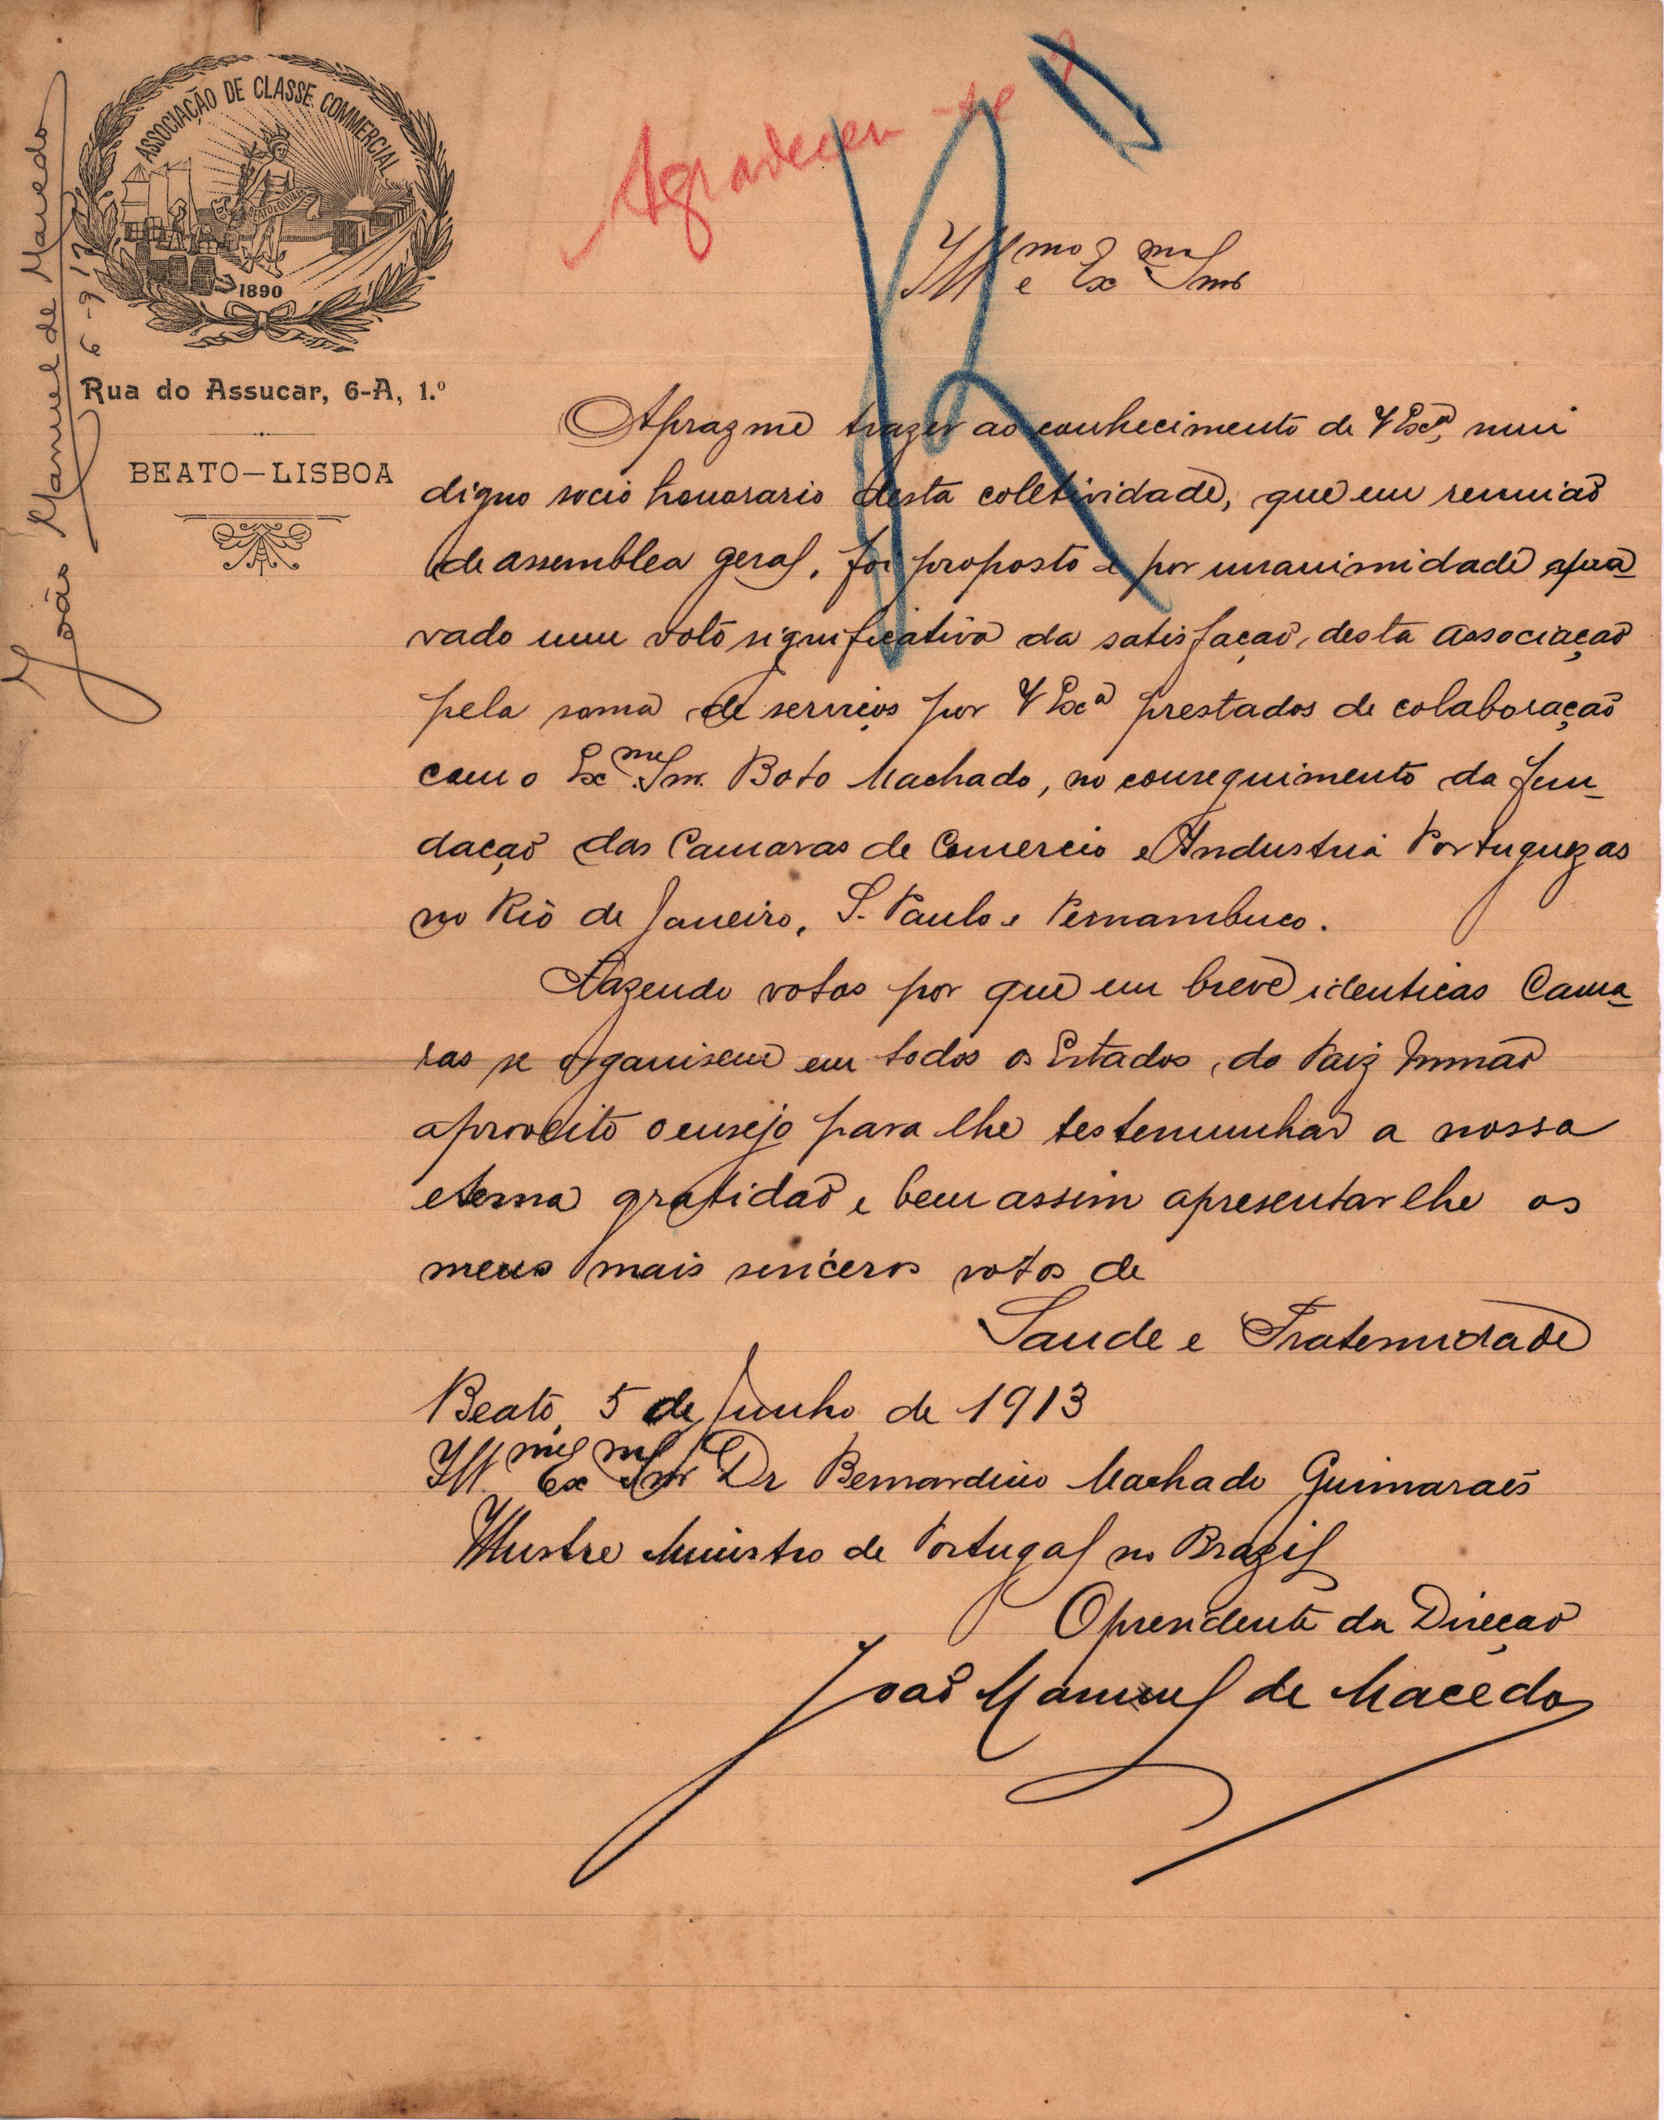 ASSOCIAÇÃO DE CLASSE COMMERCIAL
1890
Rua do Assucar, 6-A, 1.º
BEATO—LISBOA
João Manuel de Macedo
Agradecer-se
Illmo e Exmo Snr
Apraz me trazer ao conhecimento de V Exª, mui
digno socio honorario desta coletividade, que em reunião
de assemblea geral, foi proposto e por unanimidade apro
vado um voto significativo da satisfação, desta Associação
pela soma de serviços por V Exª prestados de colaboração
com o Exmo Snr. Boto Machado, no conseguimento da fun-
dação das Camaras de Comercio e Industria Portuguezas
no Rio de Janeiro, S. Paulo e Pernambuco.
Fazendo votos por que em breve identicas Cama-
ras se organisem em todos os Estados, do Paiz Irmão
aproveito o ensejo para lhe testemunhar a nossa
eterna gratidão e bem assim apresentar lhe os
meus mais sinceros votos de
Saude e Fraternidade
Beato, 5 de Junho de 1913
Illmo Exmo Snr Dr Bernardino Machado Guimarães
Illustre Ministro de Portugal no Brazil
O presidente da Direcção
João Manuel de Macedo